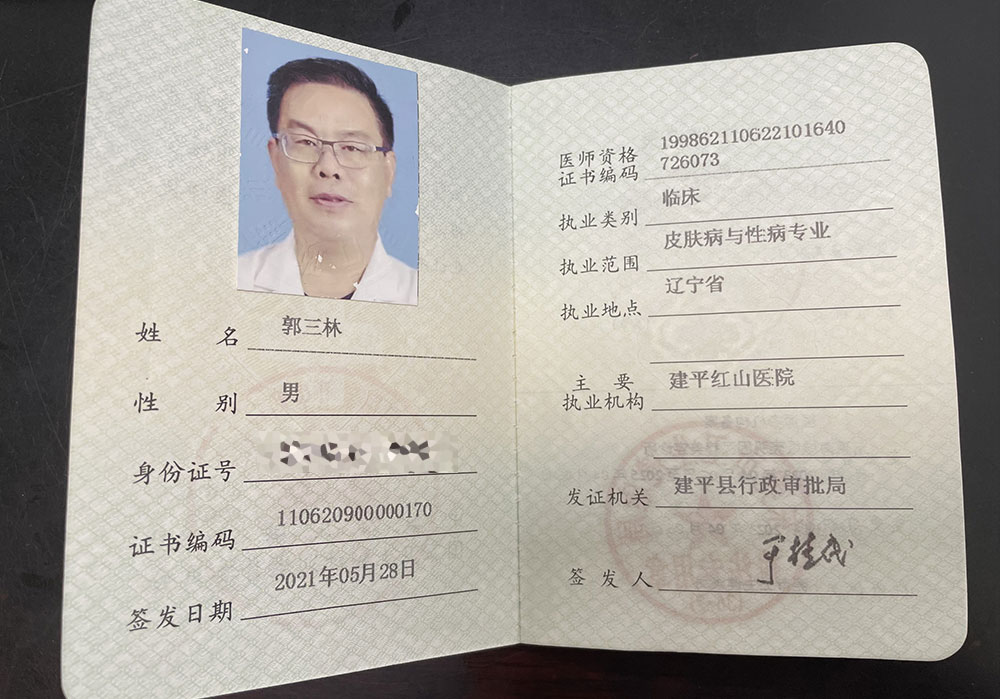 姓名 郭三林
性别 男
身份证号
证书编码 110620900000170
签发日期 2021年05月28日
医师资格 199862110622101640
证书编码 726073
执业类别 临床
执业范围 皮肤病与性病专业
执业地点 辽宁省
主要 建平红山医院
执业机构
发证机关 建平县行政审批局
签发人